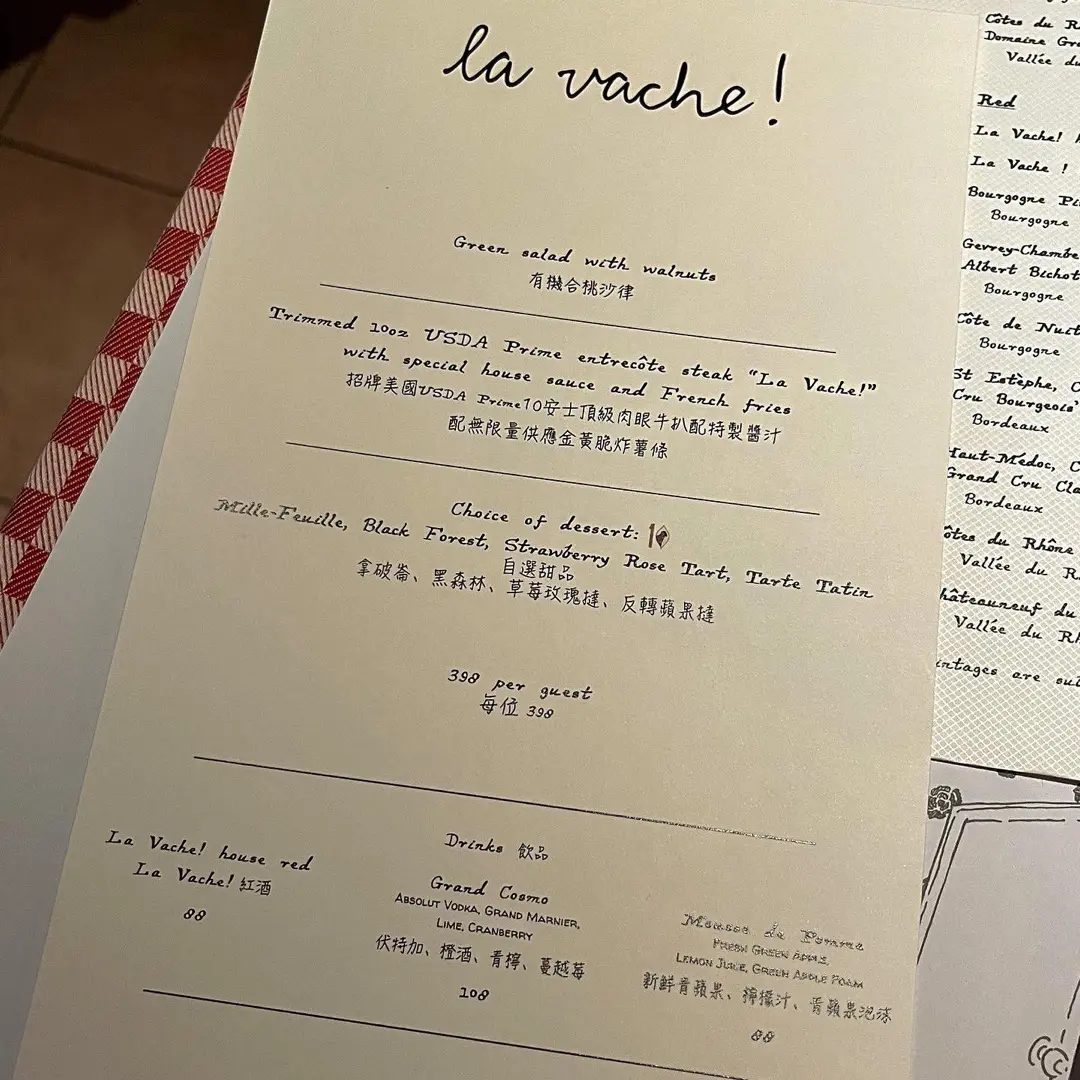 la vache!
Green salad with walnuts
有機合桃沙律
Trimmed 10oz USDA Prime entrecôte steak "La Vache!"
with special house sauce and French fries
招牌美國USDA Prime10安士頂級肉眼牛扒配特製醬汁
配無限量供應金黃脆炸薯條
Choice of dessert:
Mille-Feuille, Black Forest, Strawberry Rose Tart, Tarte Tatin
自選甜品
拿破崙、黑森林、草莓玫瑰撻、反轉蘋果撻
398 per guest
每位 398
La Vache! house red
La Vache! 紅酒
88
Drinks 飲品
Grand Cosmo
Absolut Vodka, Grand Marnier,
Lime, Cranberry
伏特加、橙酒、青檸、蔓越莓
108
Mousse de Pomme
Fresh Green Apple,
Lemon Juice, Green Apple Foam
新鮮青蘋果、檸檬汁、青蘋果泡沫
88
Côtes du
Domaine
Vallée du
Red
La Vache!
La Vache !
Bourgogne
Bourgogne
Gevrey-Chambe
Albert Bichot
Bourgogne
Côte de Nuit
Bourgogne
St Estèphe,
Cru Bourgeois
Bordeaux
Haut-Médoc,
Grand Cru
Bordeaux
Côtes du Rhône
Vallée du
hâteauneuf du
Vallée du
intages are